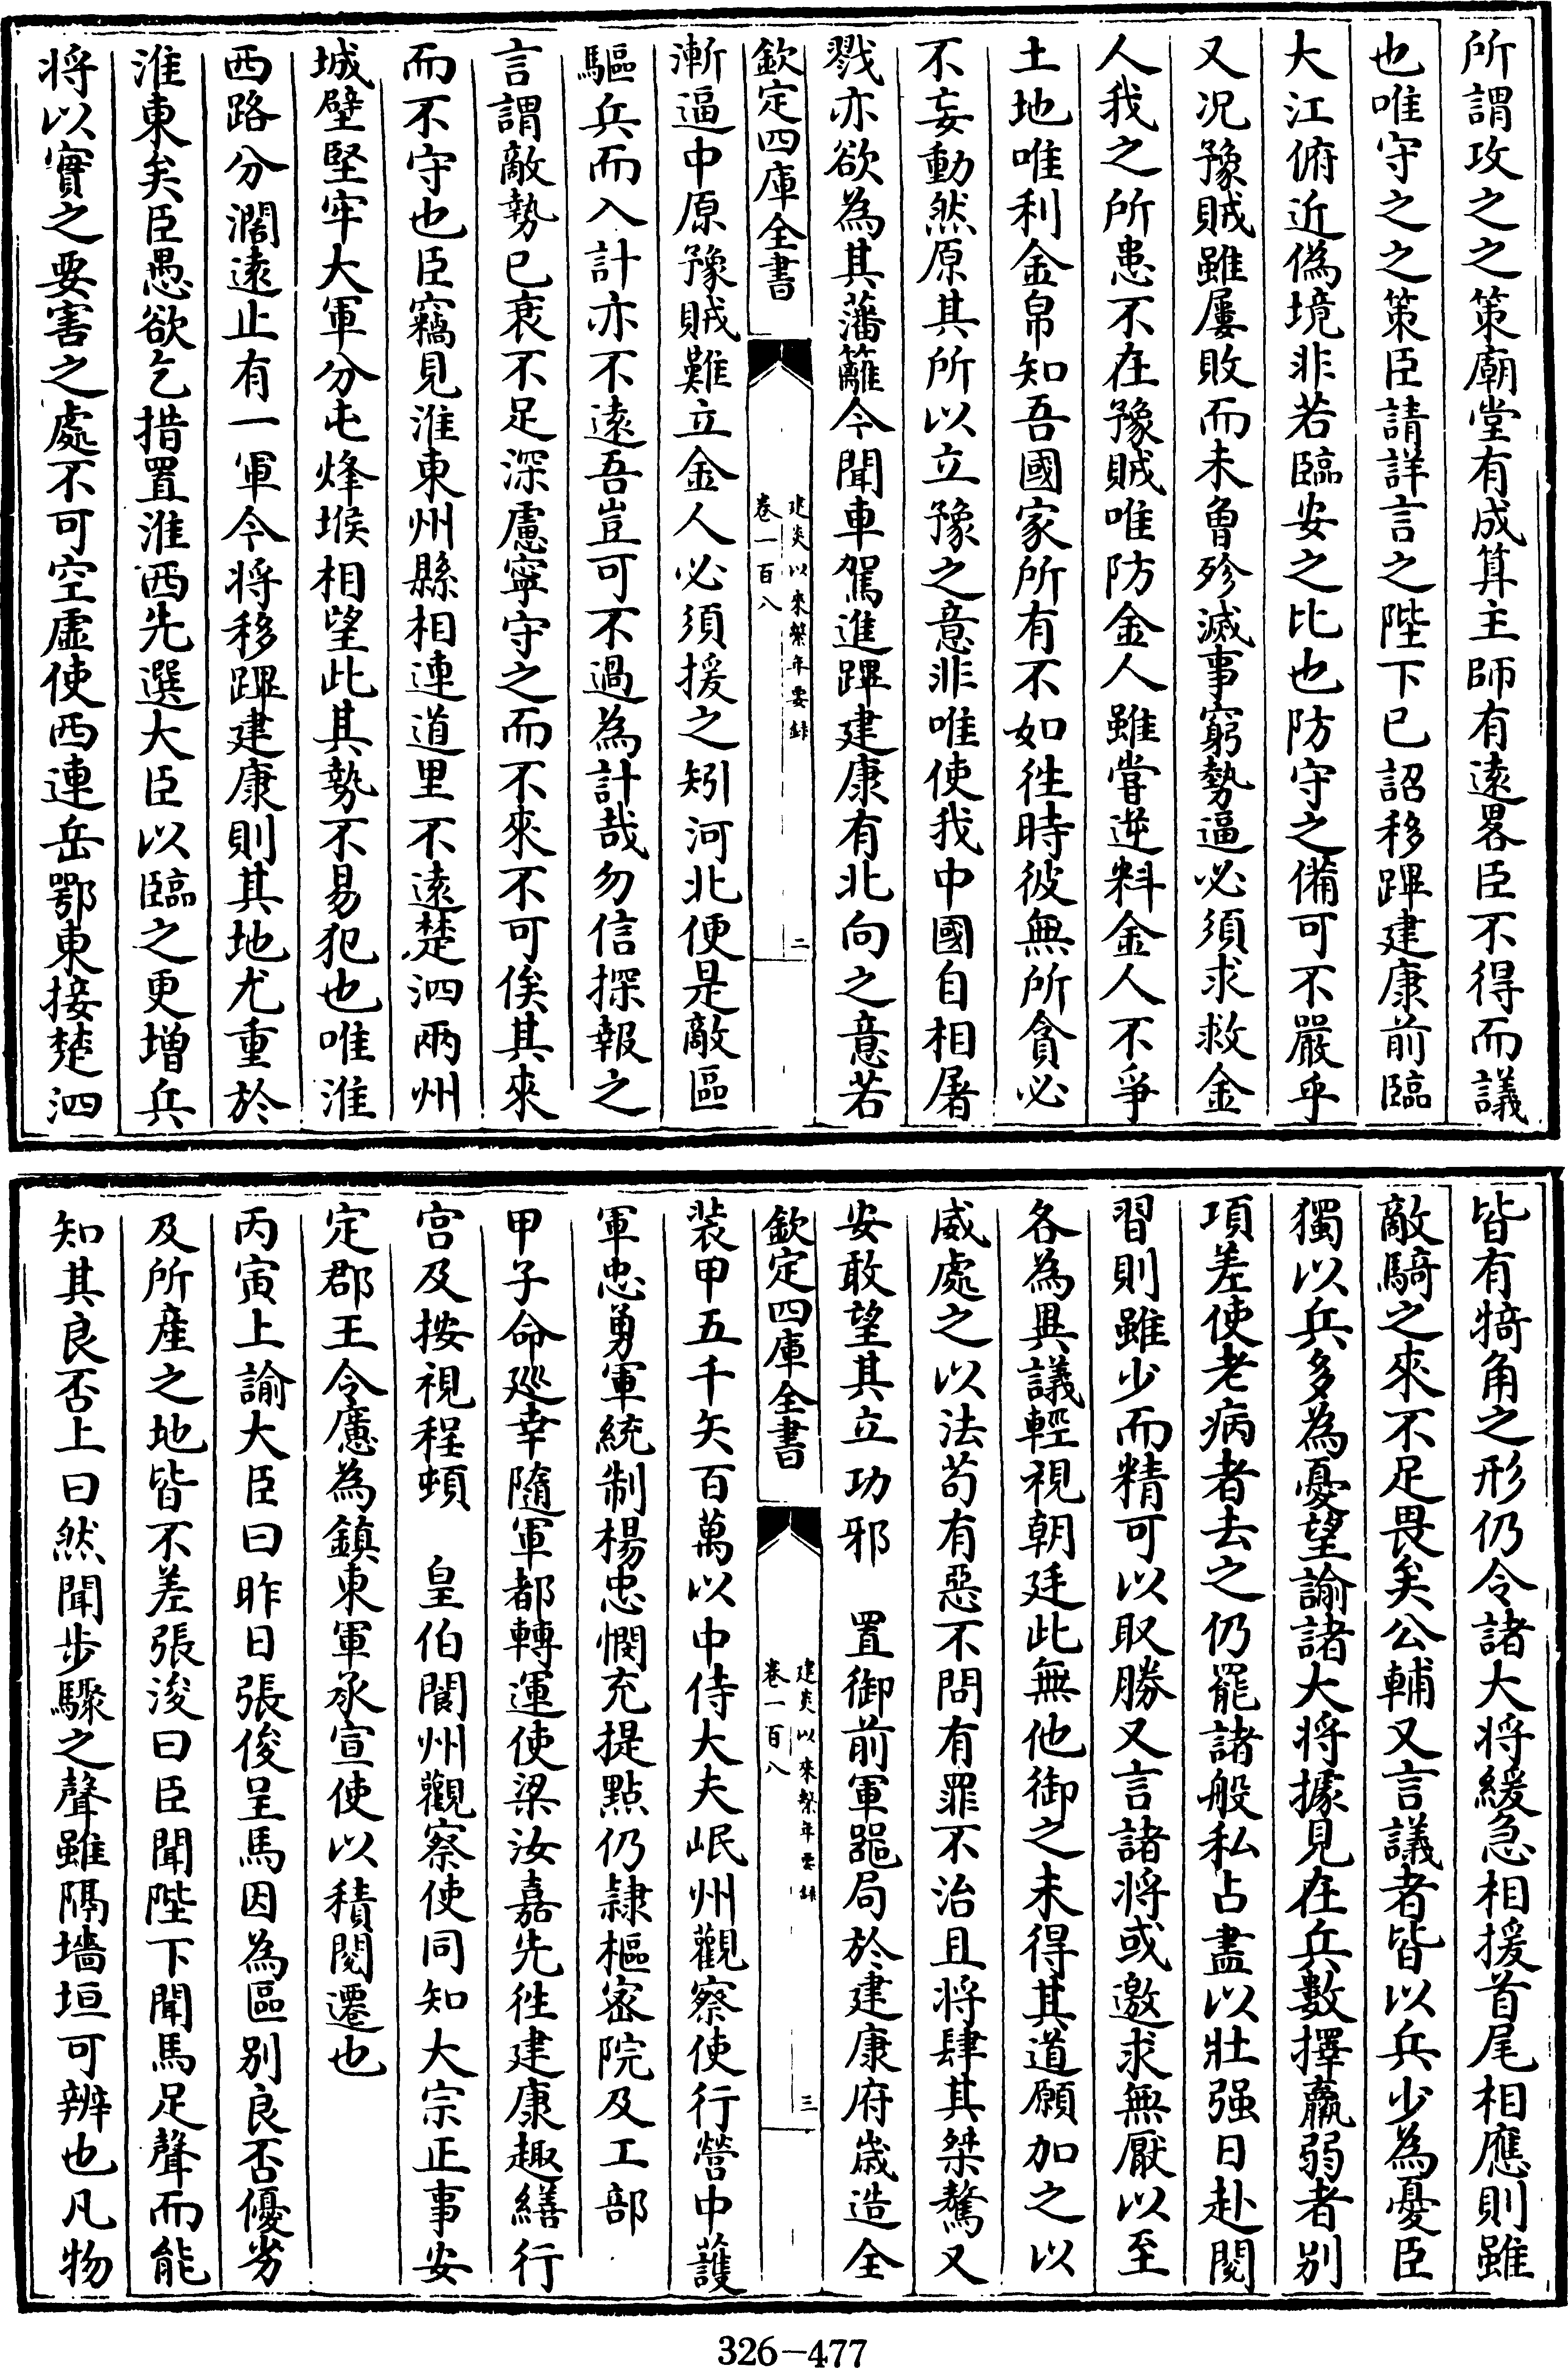 所謂攻之之策廟堂有成算主師有遠畧臣不得而議
也唯守之之策臣請詳言之陛下已詔移蹕建康前臨
大江俯近偽境非若臨安之比也防守之備可不嚴乎
又况豫賊雖屢敗而未㑹殄滅事窮勢逼必須求救金
人我之所患不在豫賊唯防金人雖嘗逆料金人不爭
土地唯利金帛知吾國家所有不如徃時彼無所貪必
不妄動然原其所以立豫之意非唯使我中國自相屠
戮亦欲為其藩籬今聞車駕進蹕建康有北向之意若
欽定四庫全書
建炎以來繫年要録
卷一百八
二
漸逼中原豫賊難立金人必須援之矧河北便是敵區
驅兵而入計亦不遠吾豈可不過為計哉勿信探報之
言謂敵勢已衰不足深慮寜守之而不來不可俟其來
而不守也臣竊見淮東州縣相連道里不遠楚泗兩州
城壁堅牢大軍分屯烽堠相望此其勢不易犯也唯淮
西路分濶遠止有一軍今將移蹕建康則其地尤重於
淮東矣臣愚欲乞措置淮西先選大臣以臨之更増兵
將以實之要害之處不可空虚使西連岳鄂東接楚泗
皆有犄角之形仍令諸大將緩急相援首尾相應則雖
敵騎之來不足畏矣公輔又言議者皆以兵少為憂臣
獨以兵多為憂望諭諸大將據見在兵數擇羸弱者别
項差使老病者去之仍罷諸般私占盡以壯强日赴閱
習則雖少而精可以取勝又言諸將或邀求無厭以至
各為異議輕視朝廷此無他御之未得其道願加之以
威處之以法苟有惡不問有罪不治且將肆其桀驁又
安敢望其立功邪　置御前軍器局於建康府歳造全
欽定四庫全書
建炎以來繫年要録
卷一百八
三
装甲五千矢百萬以中侍大夫岷州觀察使行營中護
軍忠勇軍統制楊忠憫充提點仍隷樞宻院及工部
甲子命廵幸隨軍都轉運使梁汝嘉先徃建康趣繕行
宫及按視程頓　皇伯閬州觀察使同知大宗正事安
定郡王令懬為鎮東軍承宣使以積閱遷也
丙寅上諭大臣曰昨日張俊呈馬因為區别良否優劣
及所産之地皆不差張浚曰臣聞陛下聞馬足聲而能
知其良否上曰然聞步驟之聲雖隔墻垣可辨也凡物
326-477